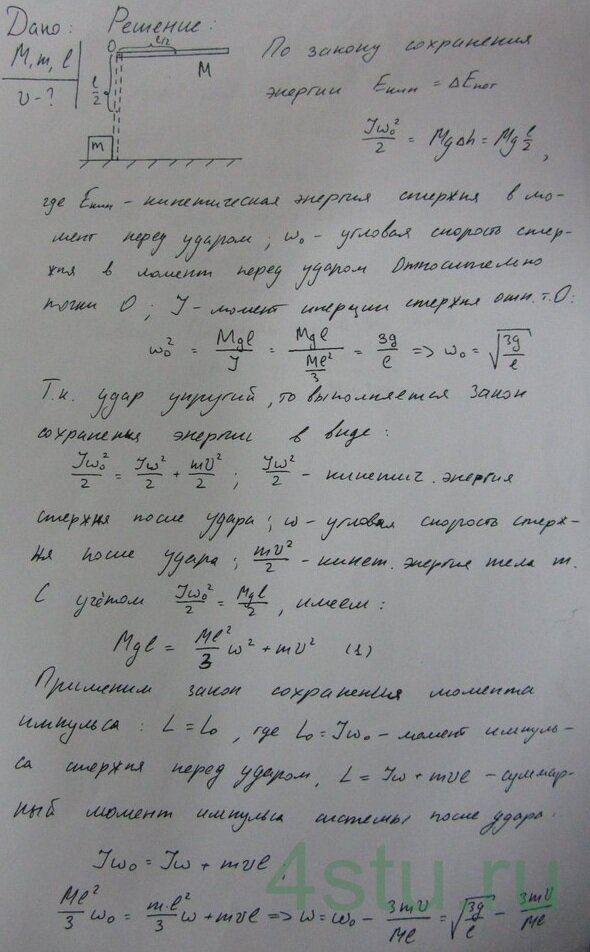 Дано: Решение:
M, m, l
v - ?
O l/2
M
l/2
m
По закону сохранения
энергии Eкин = ΔEпот
Jω₀²/2 = MgΔh = Mg l/2,
где Eкин - кинетическая энергия стержня в мо-
мент перед ударом; ω₀ - угловая скорость стер-
жня в момент перед ударом относительно
точки O; J - момент инерции стержня отн. т. O:
ω₀² = Mgl/J = Mgl/(Ml²/3) = 3g/l => ω₀ = √(3g/l)
Т.к. удар упругий, то выполняется закон
сохранения энергии в виде:
Jω₀²/2 = Jω²/2 + mv²/2 ; Jω²/2 - кинетич. энергия
стержня после удара; ω - угловая скорость стерж-
ня после удара; mv²/2 - кинет. энергия тела m.
С учётом Jω₀²/2 = Mgl/2, имеем:
Mgl = Ml²/3 ω² + mv² (1)
Применим закон сохранения момента
импульса: L = L₀, где L₀ = Jω₀ - момент импуль-
са стержня перед ударом, L = Jω + mvl - суммар-
ный момент импульса системы после удара.
Jω₀ = Jω + mvl,
Ml²/3 ω₀ = m·l²/3 ω + mvl => ω = ω₀ - 3mv/Ml = √(3g/l) - 3mv/Ml
4stu.ru